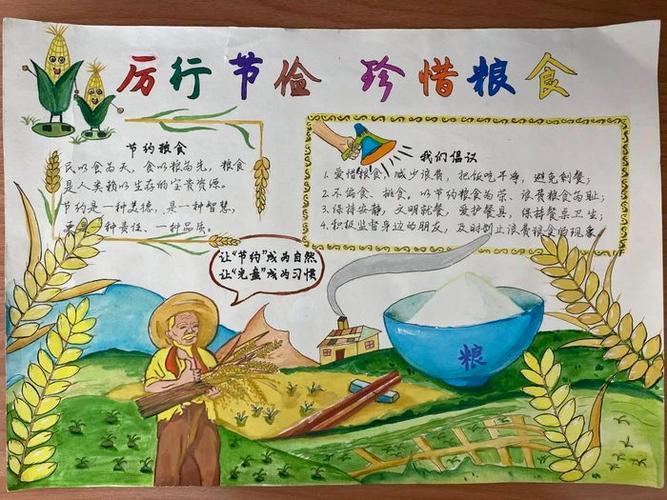 厉行节俭 珍惜粮食
节约粮食
民以食为天，食以粮为先，粮食
是人类赖以生存的宝贵资源。
节约是一种美德，是一种智慧，
更是一种责任、一种品质。
我们倡议
1.爱惜粮食，减少浪费，把饭吃干净，避免剩餐；
2.不偏食、挑食，以节约粮食为荣、浪费粮食为耻；
3.保持安静，文明就餐，爱护餐具，保持餐桌卫生；
4.积极监督身边的朋友，及时制止浪费粮食的现象
让“节约”成为自然
让“光盘”成为习惯
粮